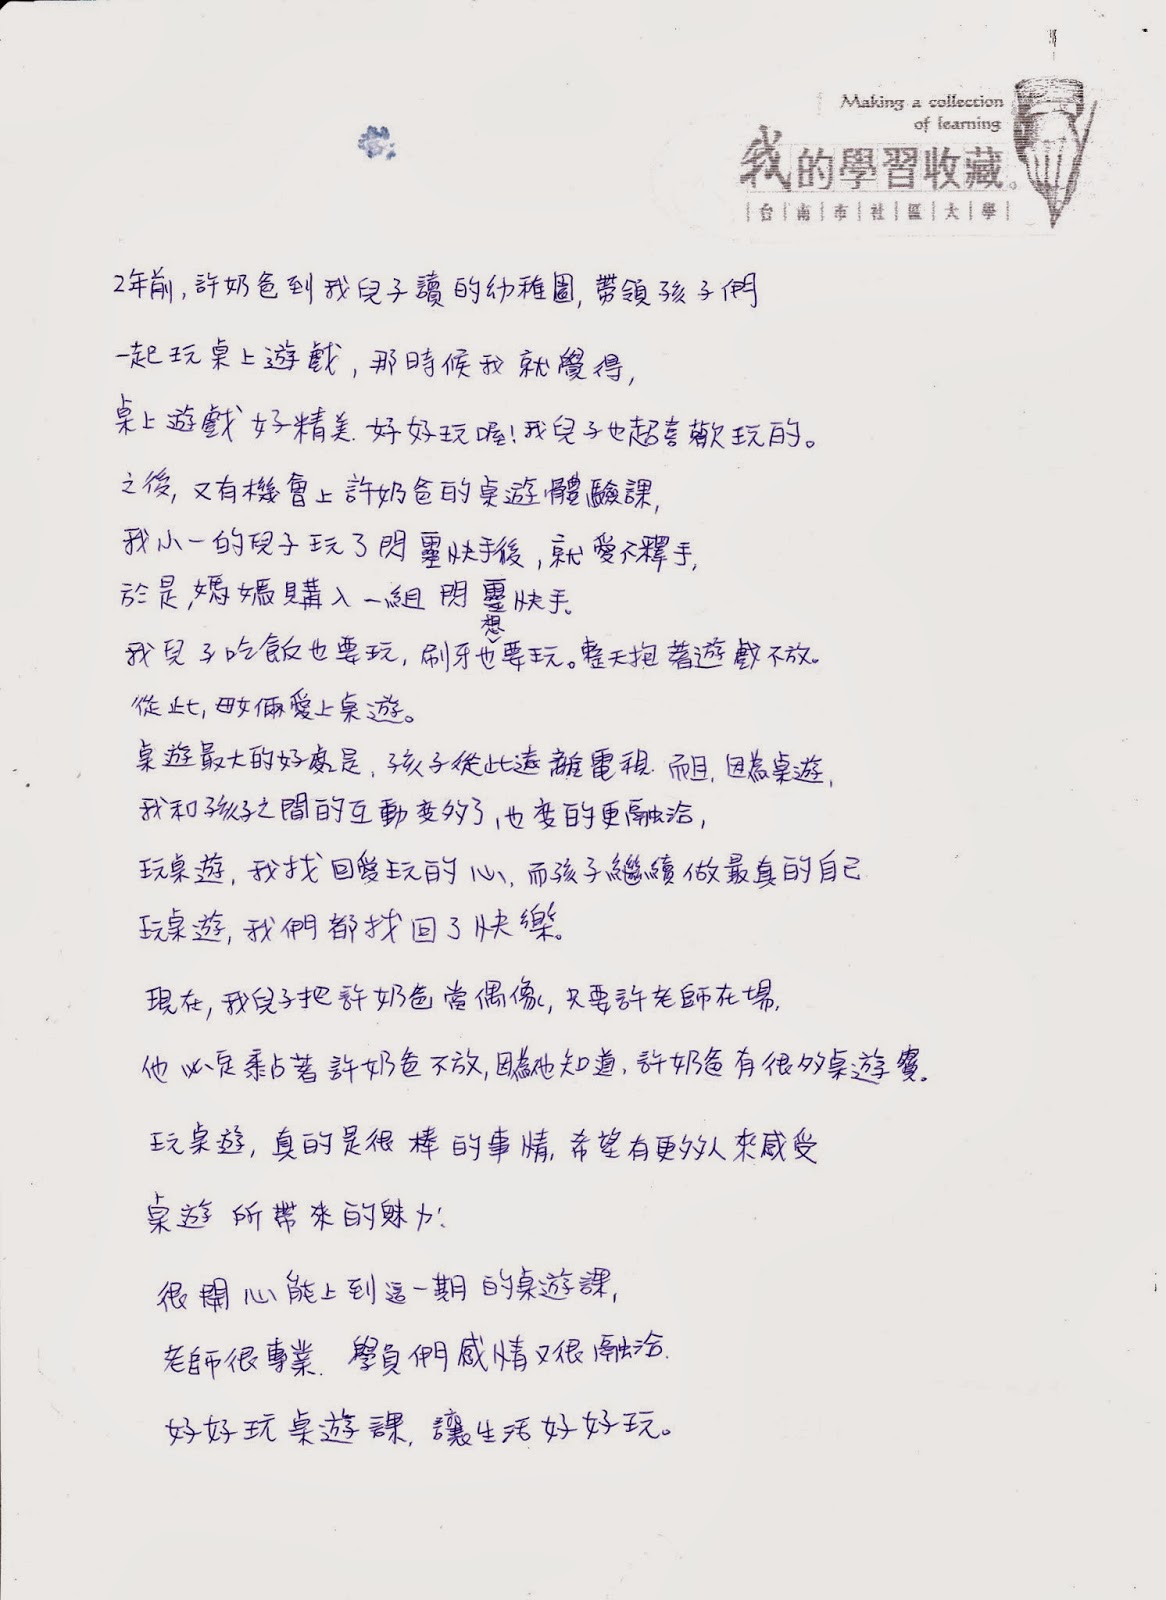 Making a collection
of learning
我的學習收藏。
台南市社區大學
2年前,許奶爸到我兒子讀的幼稚園,帶領孩子們
一起玩桌上遊戲,那時候我就覺得,
桌上遊戲好精美.好好玩喔!我兒子也超喜歡玩的。
之後,又有機會上許奶爸的桌遊體驗課,
我小一的兒子玩了閃靈快手後,就愛不釋手,
於是,媽媽購入一組閃靈快手。
我兒子吃飯也要玩,刷牙也想要玩。整天抱著遊戲不放。
從此,母女倆愛上桌遊。
桌遊最大的好處是,孩子從此遠離電視.而且,因為桌遊,
我和孩子之間的互動变多了,也变的更融洽,
玩桌遊,我找回愛玩的心,而孩子繼續做最真的自己
玩桌遊,我們都找回了快樂。
現在,我兒子把許奶爸當偶像,只要許老師在場,
他必定黏著許奶爸不放,因為他知道,許奶爸有很多桌遊寶。
玩桌遊,真的是很棒的事情,希望有更多人來感受
桌遊所帶來的魅力!
很開心能上到這一期的桌遊課,
老師很專業.學員們感情又很融洽.
好好玩桌遊課,讓生活好好玩。